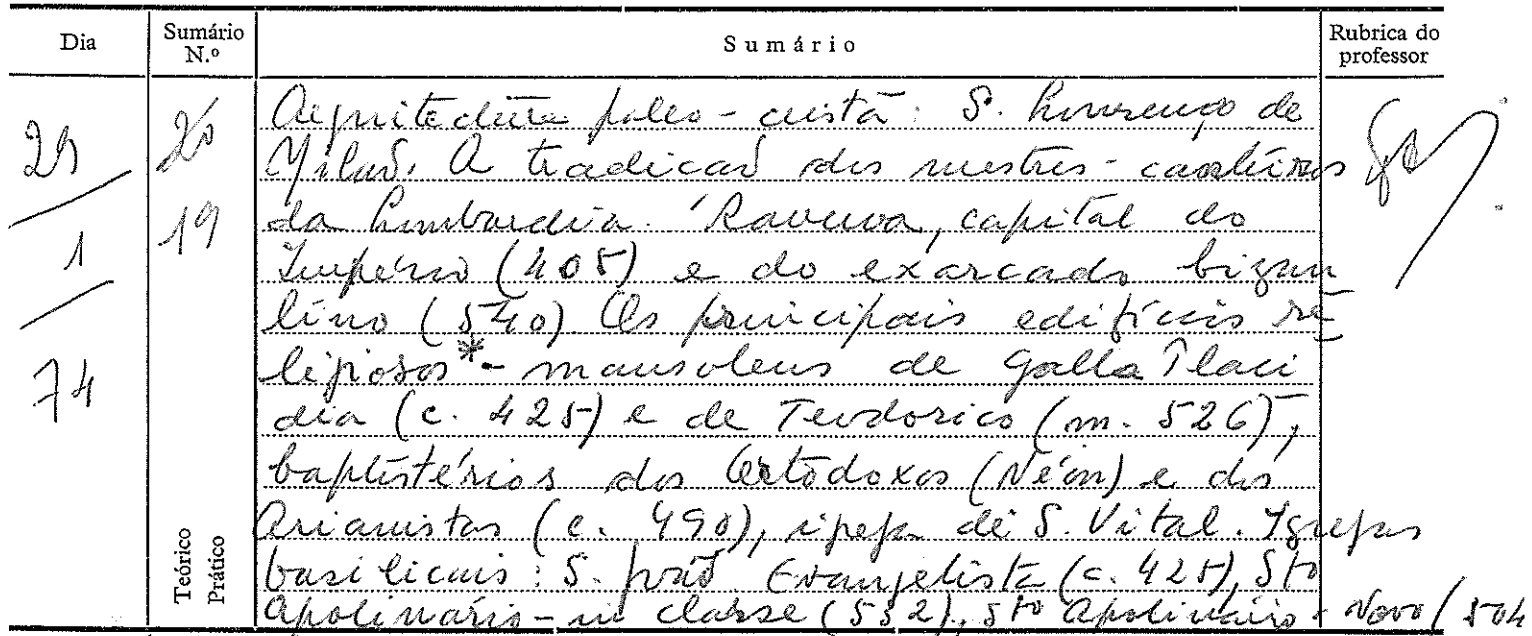 Dia Sumário N.º Sumário Rubrica do professor
29 20 Arquitectura paleo-cristã: S. Lourenço de
Milão. A tradicão dos mestres-canteiros
1 19 da Lombardia. Ravena, capital do
Império (405) e do exarcado bizan
tino (540) Os principais edifícios re
74 ligiosos* - mausoleus de Galla Placi
dia (c. 425) e de Teodorico (m. 526),
baptistérios dos Ortodoxos (Néon) e dos
Arianistas (c. 490), igreja de S. Vital. Igrejas
basilicais: S. João Evangelista (c. 425), Sto
Apolinário-in classe (532), Sto Apolinário-Novo (504
Teórico
Prático